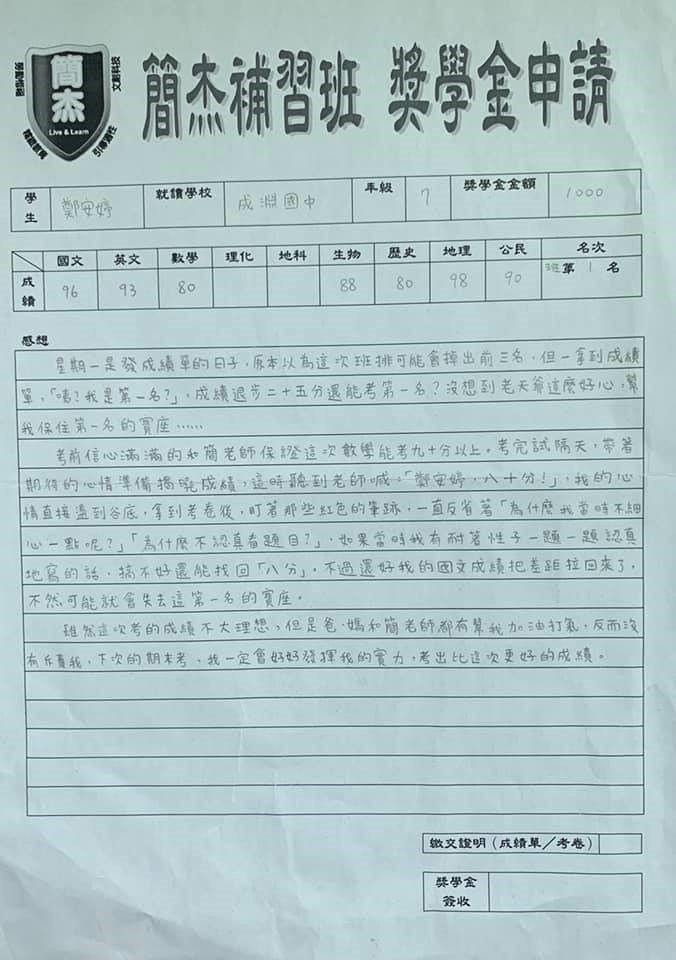 簡杰
Live & Learn
簡杰補習班 獎學金申請
學生 鄭安婷 就讀學校 成淵國中 年級 7 獎學金金額 1000
國文 英文 數學 理化 地科 生物 歷史 地理 公民 名次
成績 96 93 80 88 80 98 90 班第 1 名
感想
星期一是發成績單的日子,原本以為這次班排可能會掉出前三名,但一拿到成績
單,「唷!我是第一名?」,成績退步二十五分還能考第一名?沒想到老天爺這麼好心,幫
我保住第一名的寶座……
考前信心滿滿的和簡老師保證這次數學能考九十分以上。考完試隔天,帶著
期待的心情準備揭曉成績,這時聽到老師喊:「鄭安婷,八十分!」,我的心
情直接盪到谷底,拿到考卷後,盯著那些紅色的筆跡,一直反省著「為什麼我當時不細
心一點呢?」「為什麼不認真看題目?」,如果當時我有耐著性子一題一題認真
地寫的話,搞不好還能找回「八分」。不過還好我的國文成績把差距拉回來了,
不然可能就會失去這第一名的寶座。
雖然這次考的成績不大理想,但是爸、媽和簡老師都有幫我加油打氣,反而沒
有斥責我,下次的期末考、我一定會好好發揮我的實力,考出比這次更好的成績。
繳交證明(成績單/考卷)
獎學金
簽收